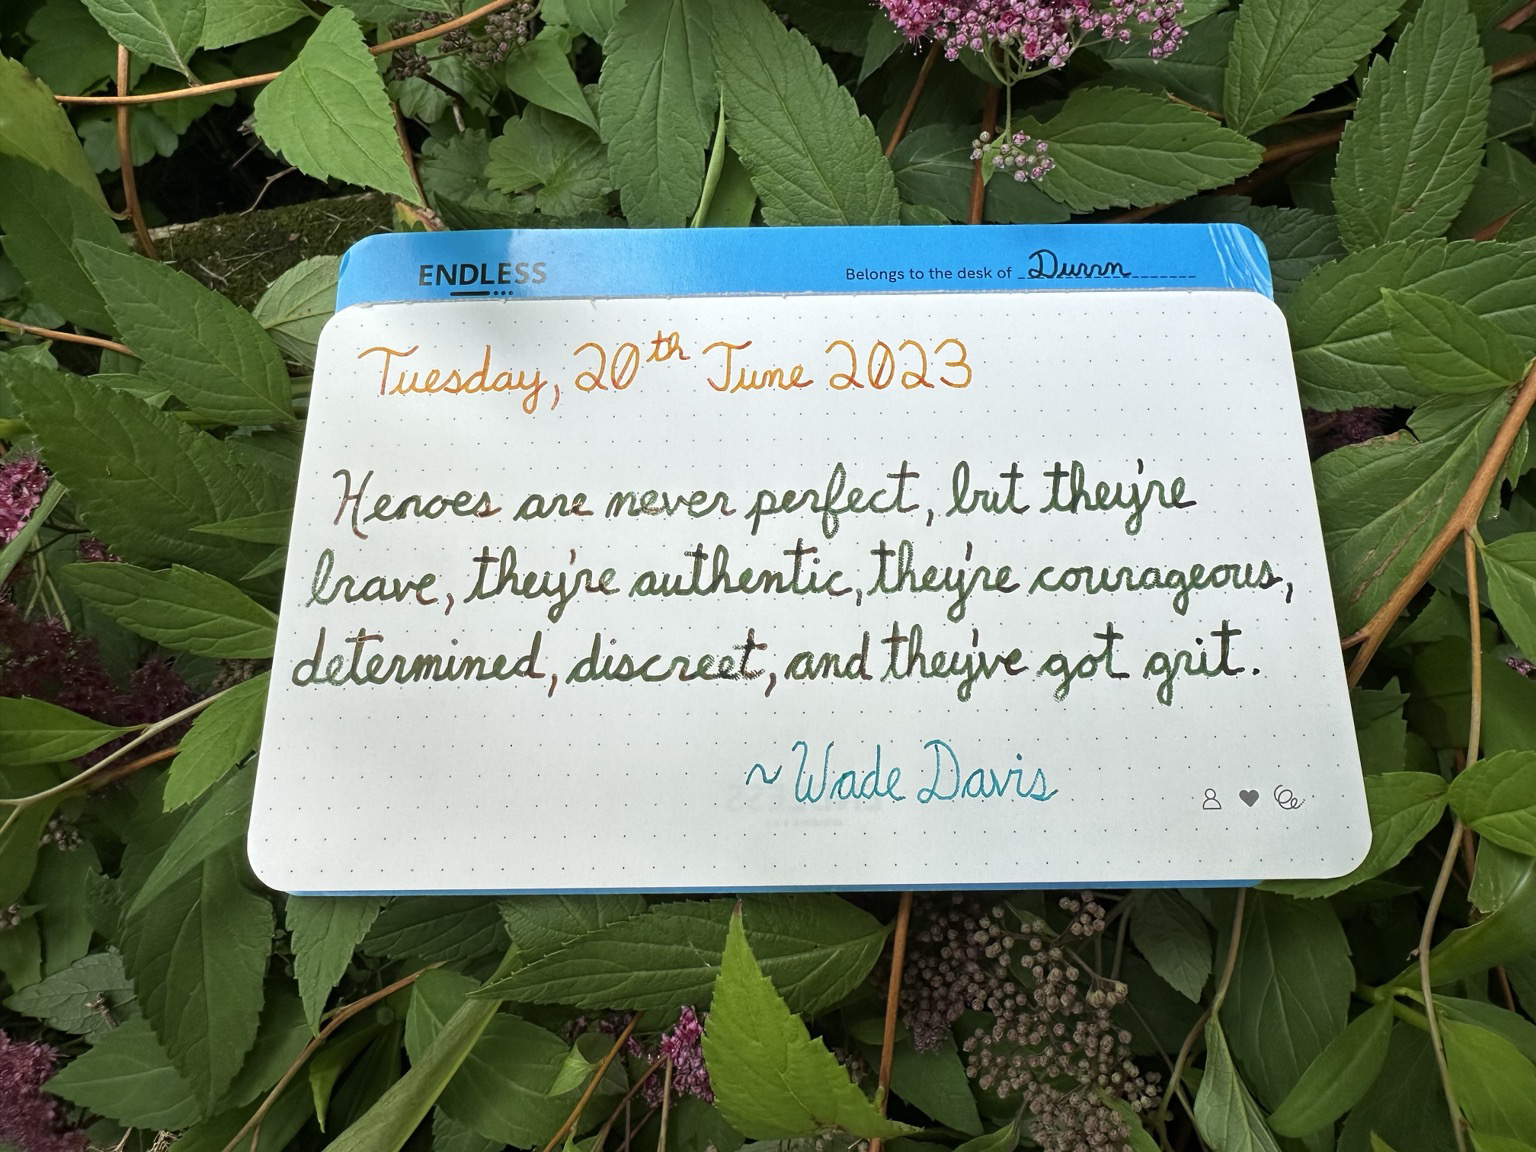 ENDLESS
Belongs to the desk of Durrn
Tuesday, 20th June 2023
Heroes are never perfect, but they're
brave, they're authentic, they're courageous,
determined, discreet, and they've got grit.
~Wade Davis